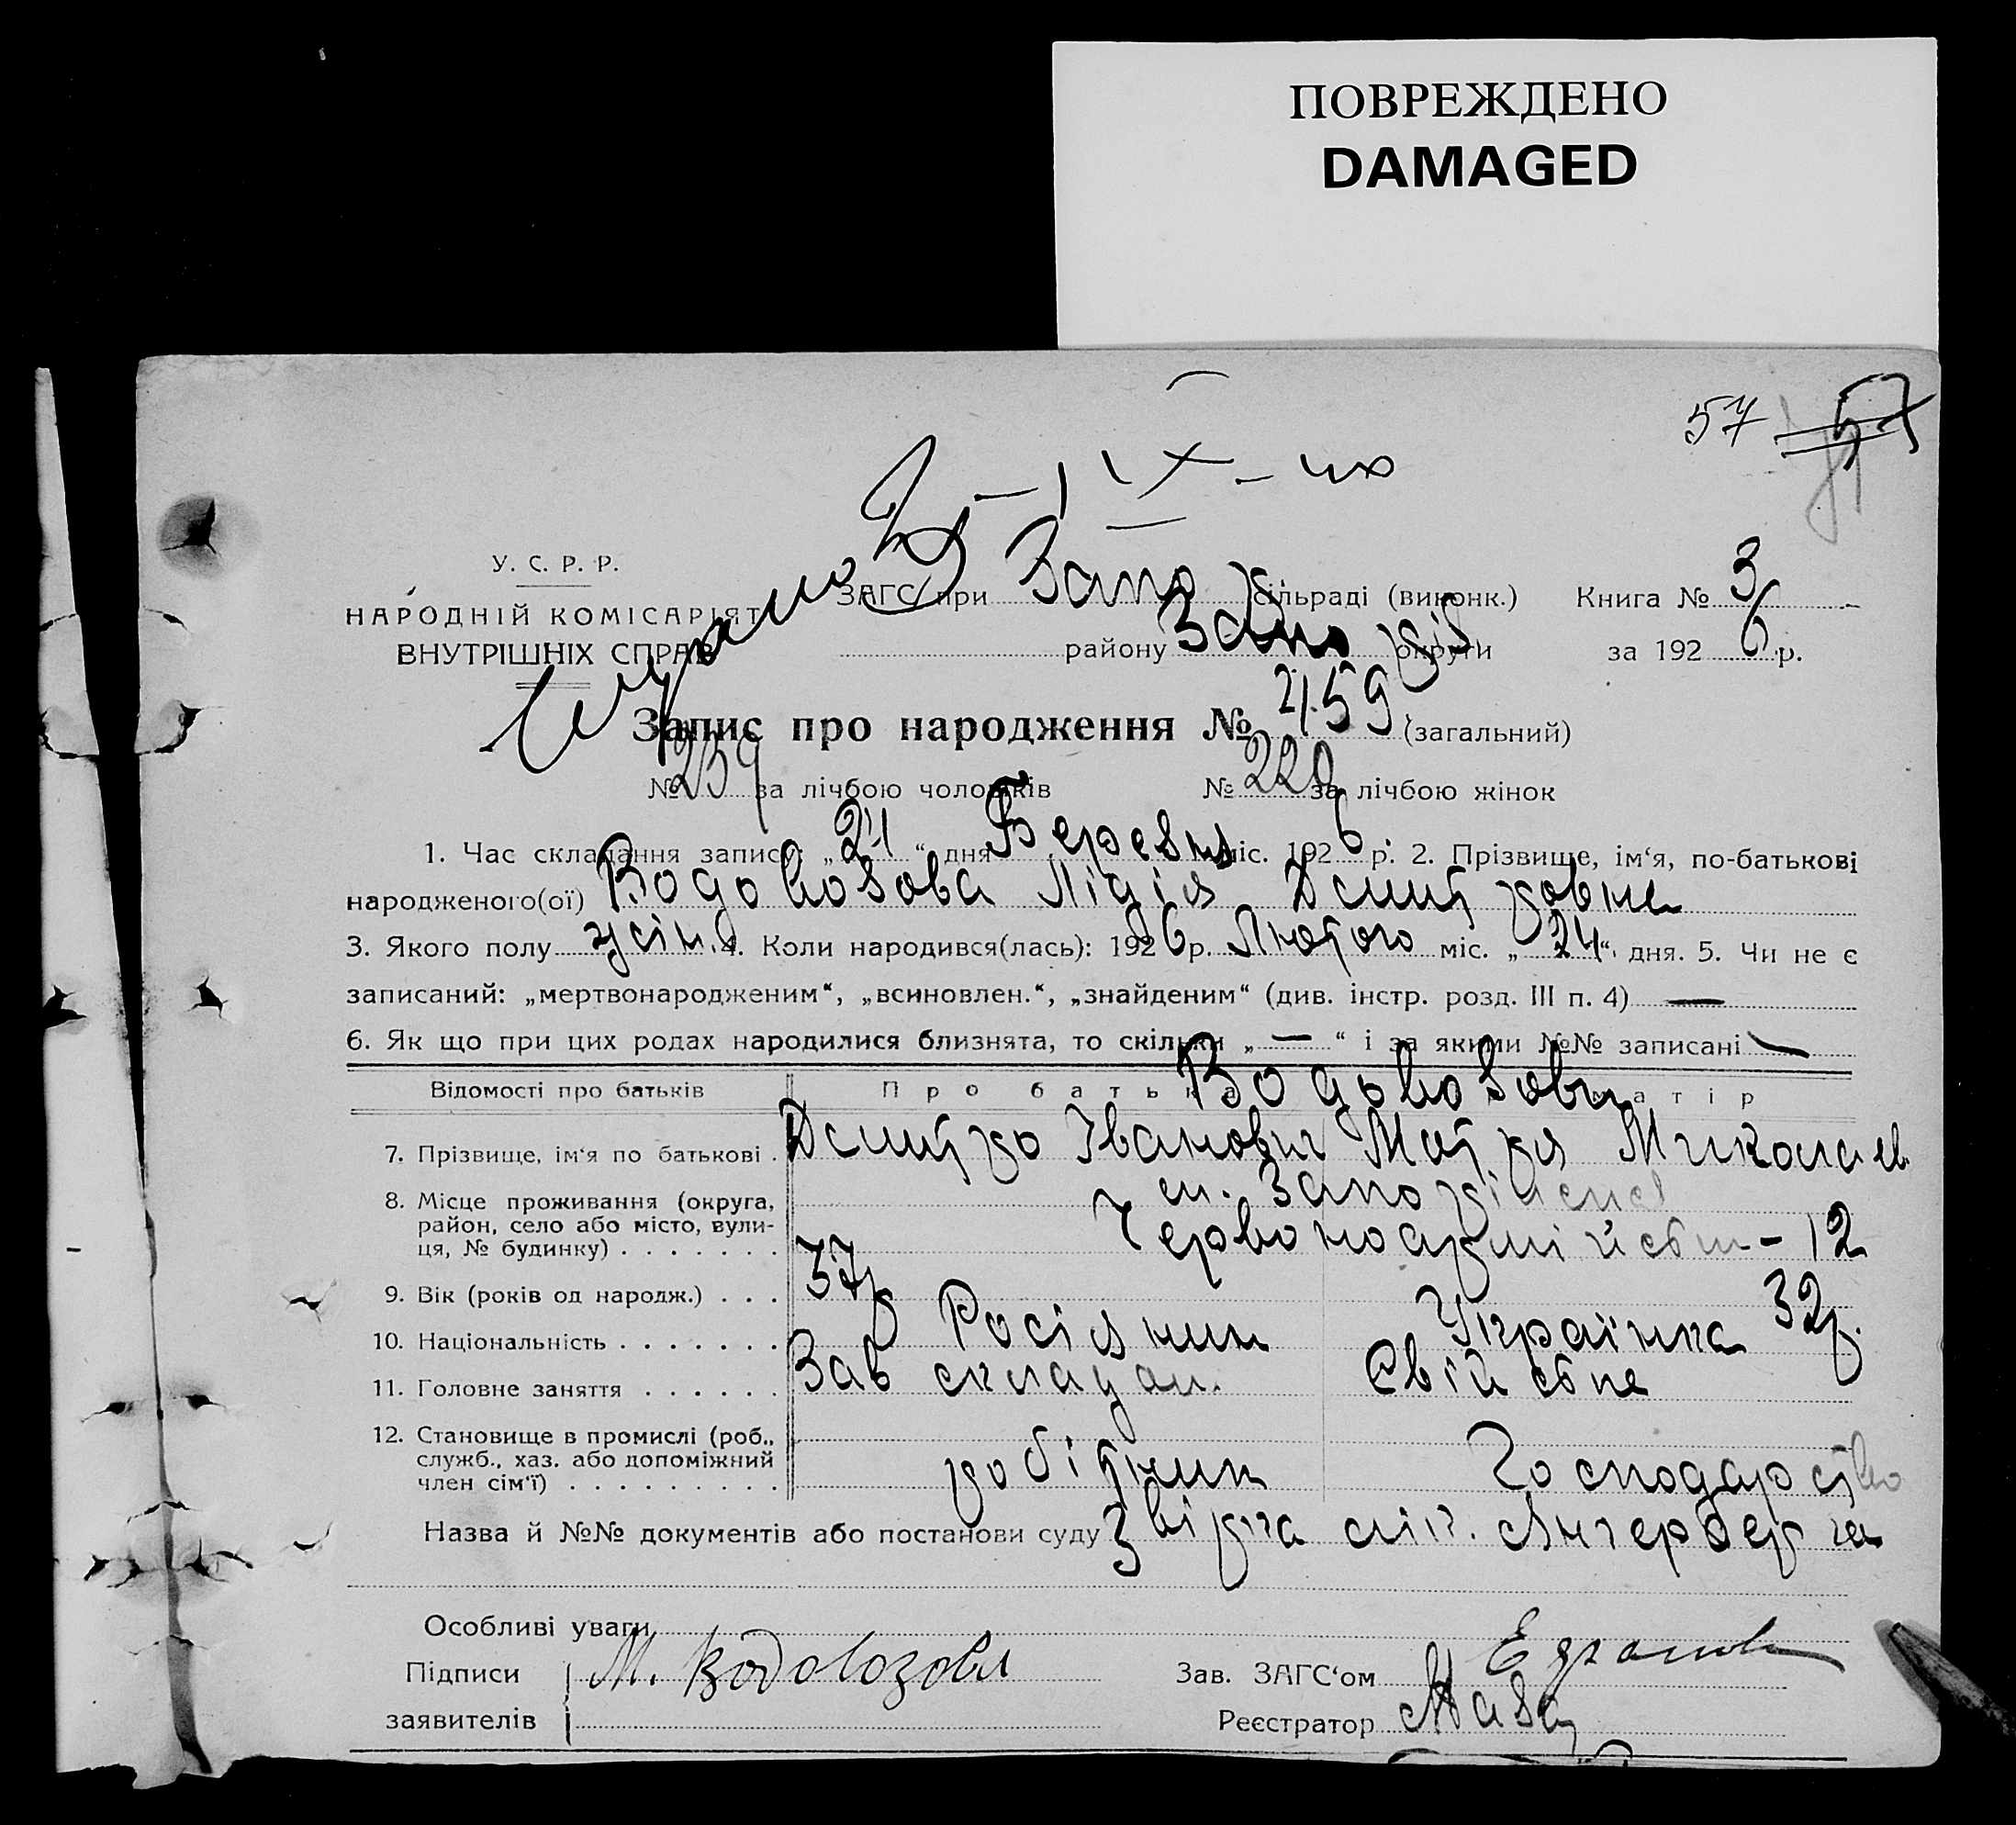 ПОВРЕЖДЕНО
DAMAGED
57
У. С. Р. Р.
НАРОДНІЙ КОМІСАРІЯТ
ВНУТРІШНІХ СПРАВ
ЗАГС при Запо сільраді (виконк.)
району Запо округи
Книга № 3
за 1926 р.
Запис про народження № 459 (загальний)
№ 239 за лічбою чоловіків № 220 за лічбою жінок
1. Час складання запису: „24“ дня Березня міс. 1926 р. 2. Прізвище, ім‘я, по-батькові
народженого(ої) Водовозова Лідія Дмитровна
3. Якого полу жін. 4. Коли народився(лась): 1926 р. Лютого міс. „24“ дня. 5. Чи не є
записаний: „мертвонародженим“, „всиновлен.“, „знайденим“ (див. інстр. розд. III п. 4) —
6. Як що при цих родах народилися близнята, то скільки „—“ і за якими №№ записані —
Відомості про батьків Про батька матір
Водовозови
7. Прізвище, ім‘я по батькові . Дмитро Іванович Мотря Миколаєв
8. Місце проживання (округа,
район, село або місто, вули-
ця, № будинку) . . . . . . .
м.
Червоноармійськ - 12
9. Вік (років од народж.) . . . 37р 32р.
10. Національність . . . . . . . Росіянин Українка
11. Головне заняття . . . . . . Зав складом. Свійське
12. Становище в промислі (роб.,
служб., хаз. або допоміжний
член сім‘ї) . . . . . . . . .
робітник Господарство
Назва й №№ документів або постанови суду
Особливі уваги
Підписи
заявителів
М. Водовозова
Зав. ЗАГС‘ом
Реєстратор